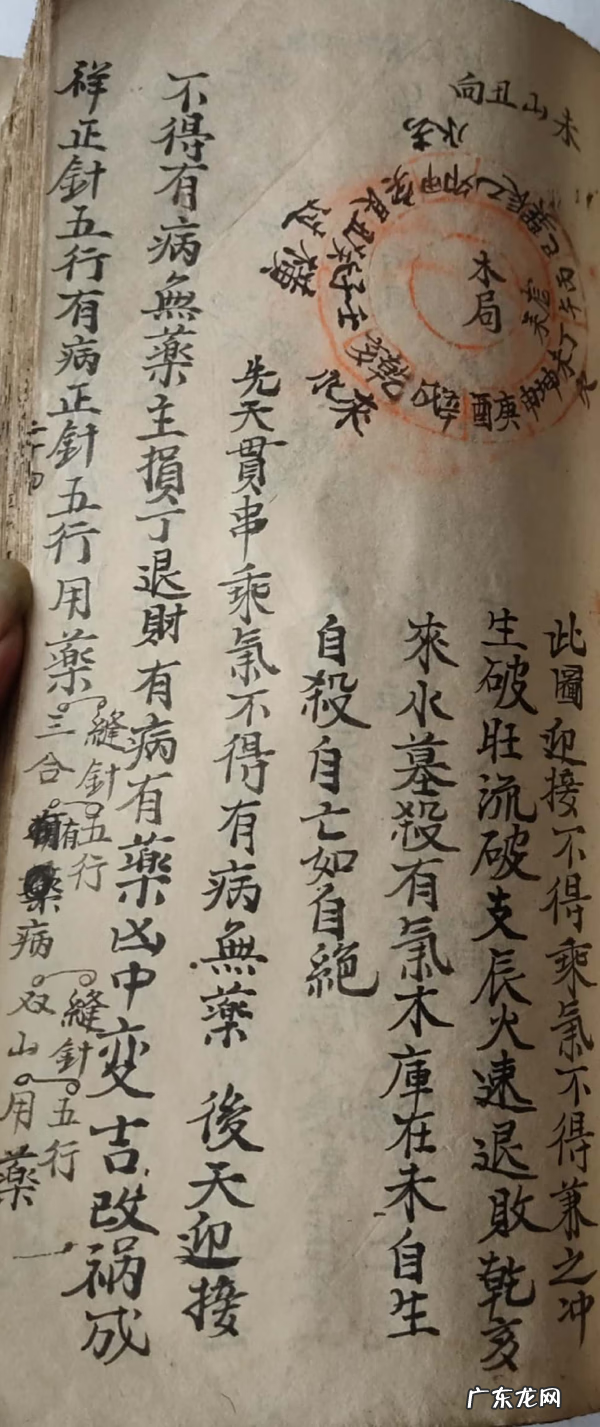 未山丑向
木局
此圖迎接不得乘氣不得兼之冲
生破旺流破支辰火速退敗乾亥
來水墓殺有氣木庫在未自生
自殺自亡如自絕
先天貫串乘氣不得有病無藥 後天迎接
不得有病無藥主損丁退財有病有藥凶中变吉改祸成
祥正針五行有病正針五行用藥
縫針五行
三合有病
縫針五行
双山用藥
广东龙网